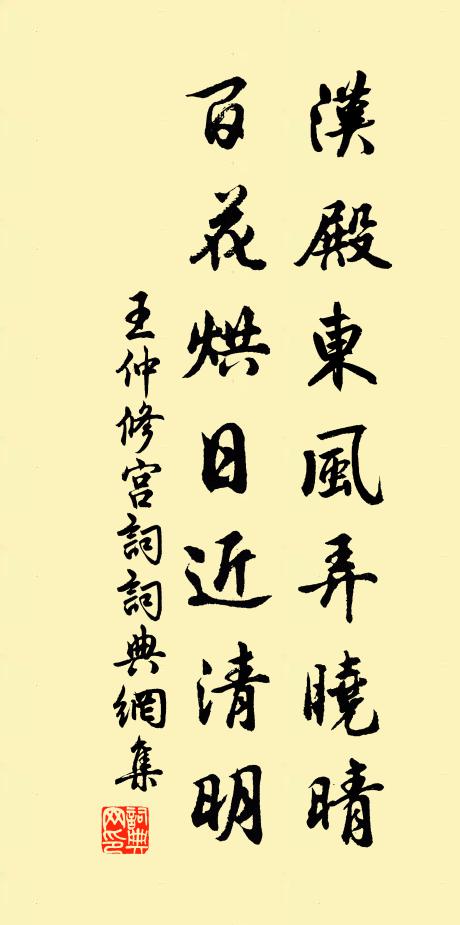 漢殿東風弄曉晴
百花烘日近清明
王仲修宮詞詞典網集
詞典网印